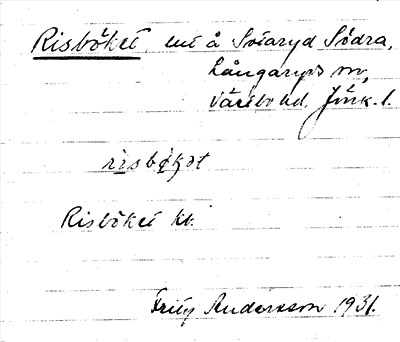 Risböket, ent å Sotaryd Södra,
Långaryds sn,
Västbo hd, Jönk. l.
risbökət
Risböket kb.
Fritz Andersson 1931.